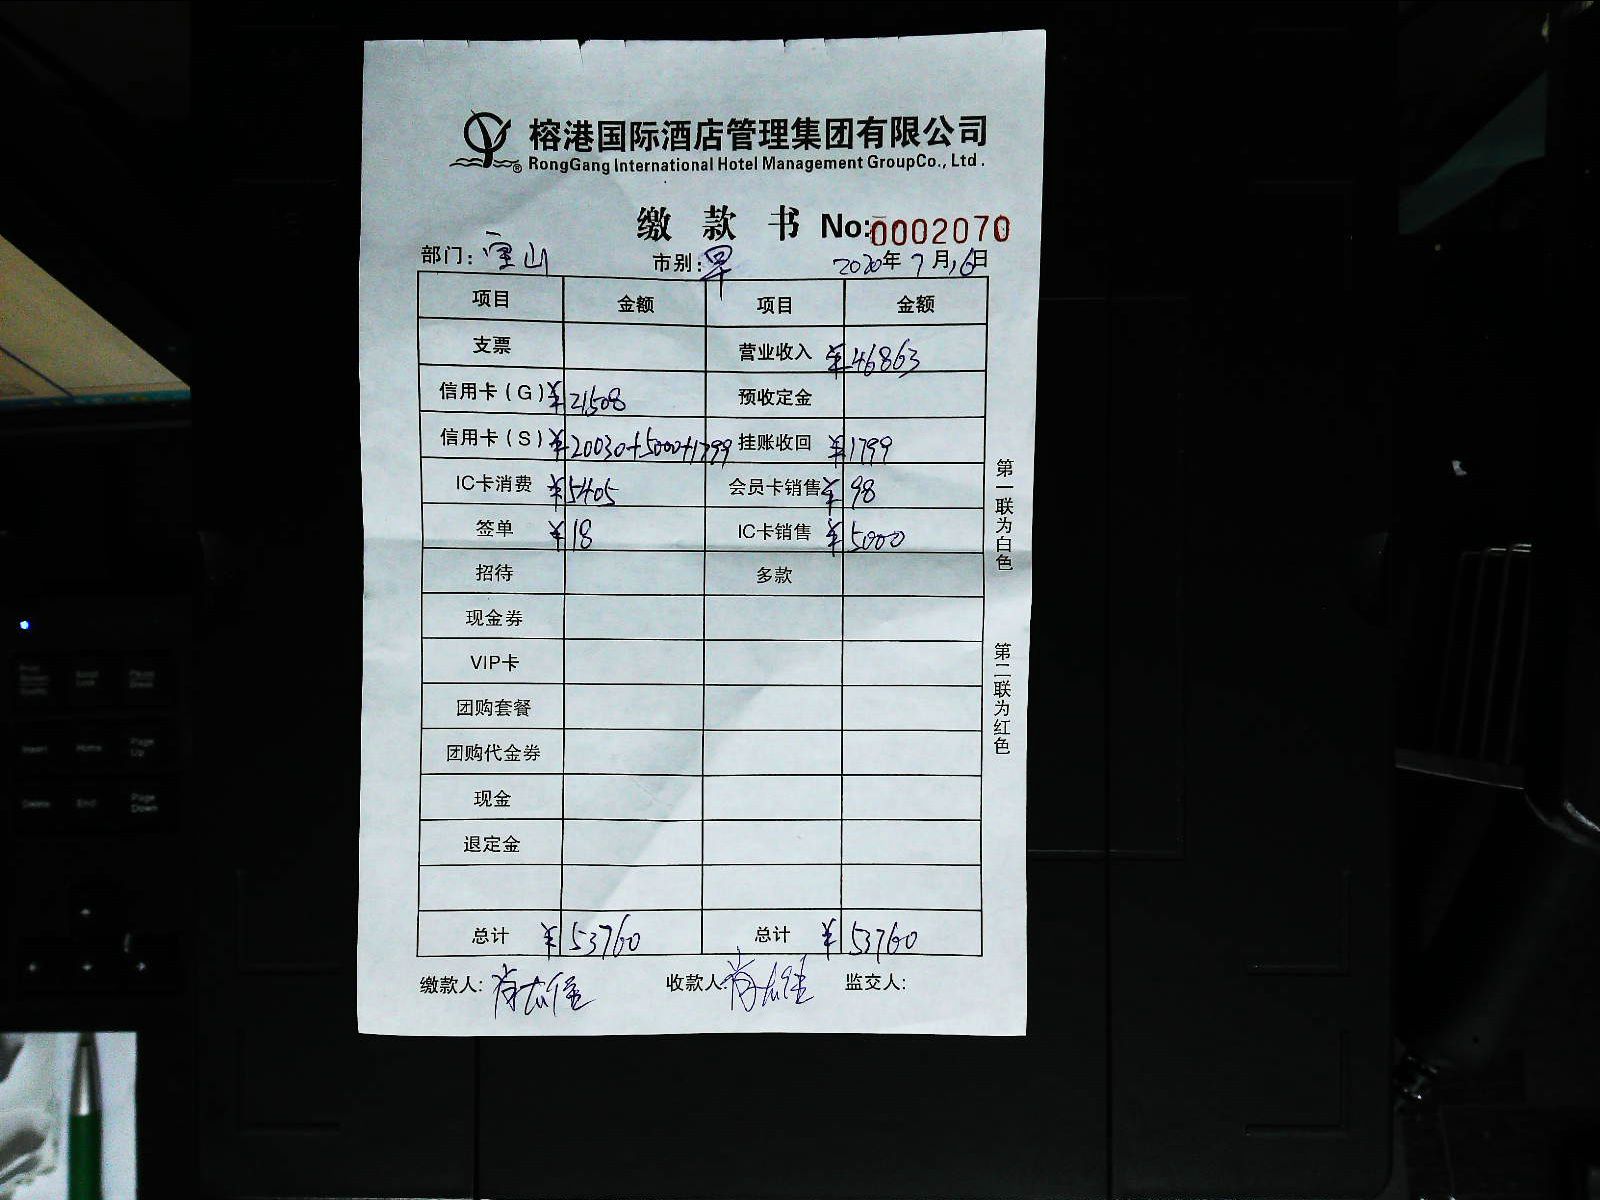 榕港国际酒店管理集团有限公司
RongGang International Hotel Management GroupCo., Ltd.
缴款书 No:0002070
部门:宝山 市别:早 2020年7月16日
项目 金额 项目 金额
支票 营业收入 ¥46863
信用卡(G) ¥21508 预收定金
信用卡(S) ¥20030+5000+1799 挂账收回 ¥1799
IC卡消费 ¥5405 会员卡销售 ¥98
签单 ¥18 IC卡销售 ¥5000
招待 多款
现金券
VIP卡
团购套餐
团购代金券
现金
退定金
总计 ¥53760 总计 ¥53760
缴款人: 收款人: 监交人:
第一联为白色
第二联为红色
Insert Home Page Up
Delete End Page Down